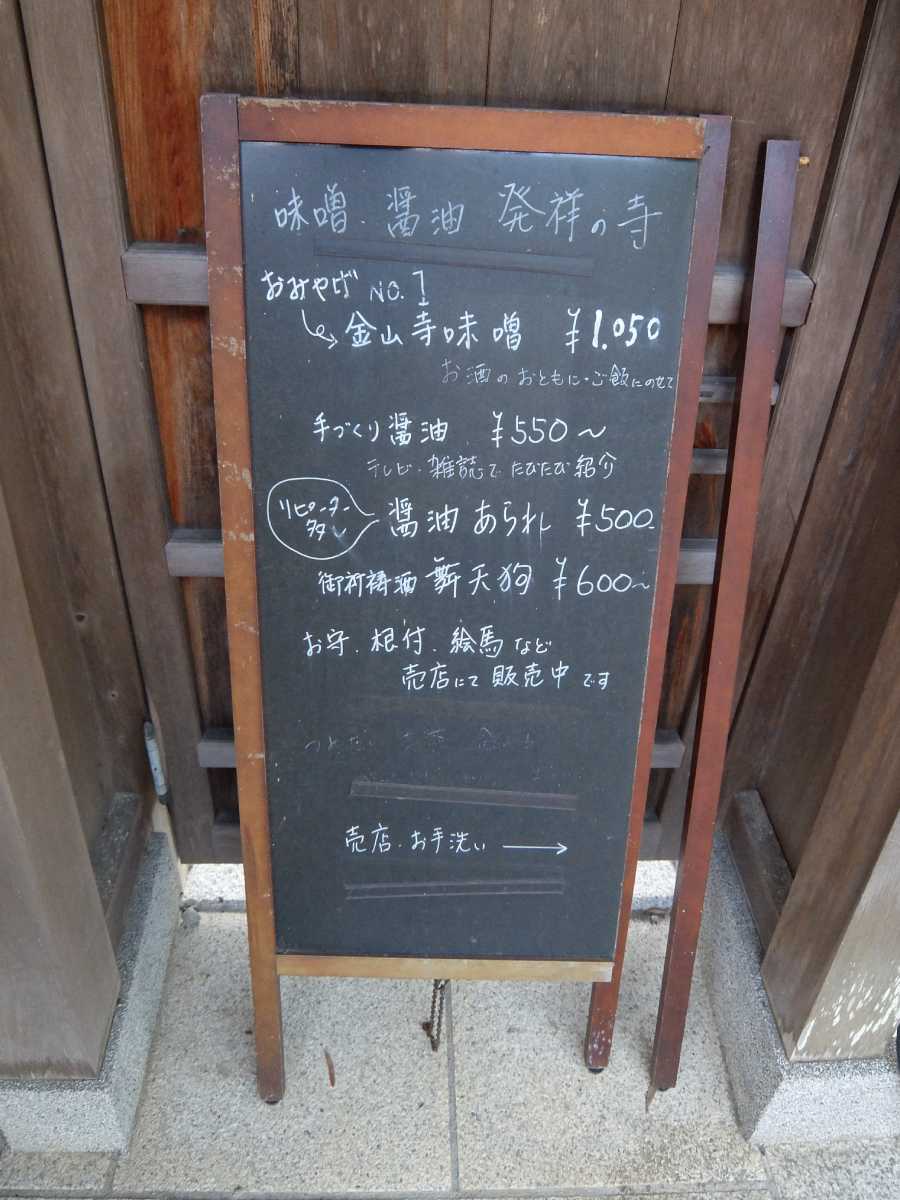 味噌、醤油 発祥の寺
おみやげ NO.1
金山寺味噌 ¥1.050
お酒のおともに・ご飯にのせて
手づくり醤油 ¥550〜
テレビ・雑誌でたびたび紹介
リピーター
多シ
醤油あられ ¥500-
御祈祷酒 舞天狗 ¥600〜
お守、根付、絵馬など
売店にて販売中です
売店・お手洗い →